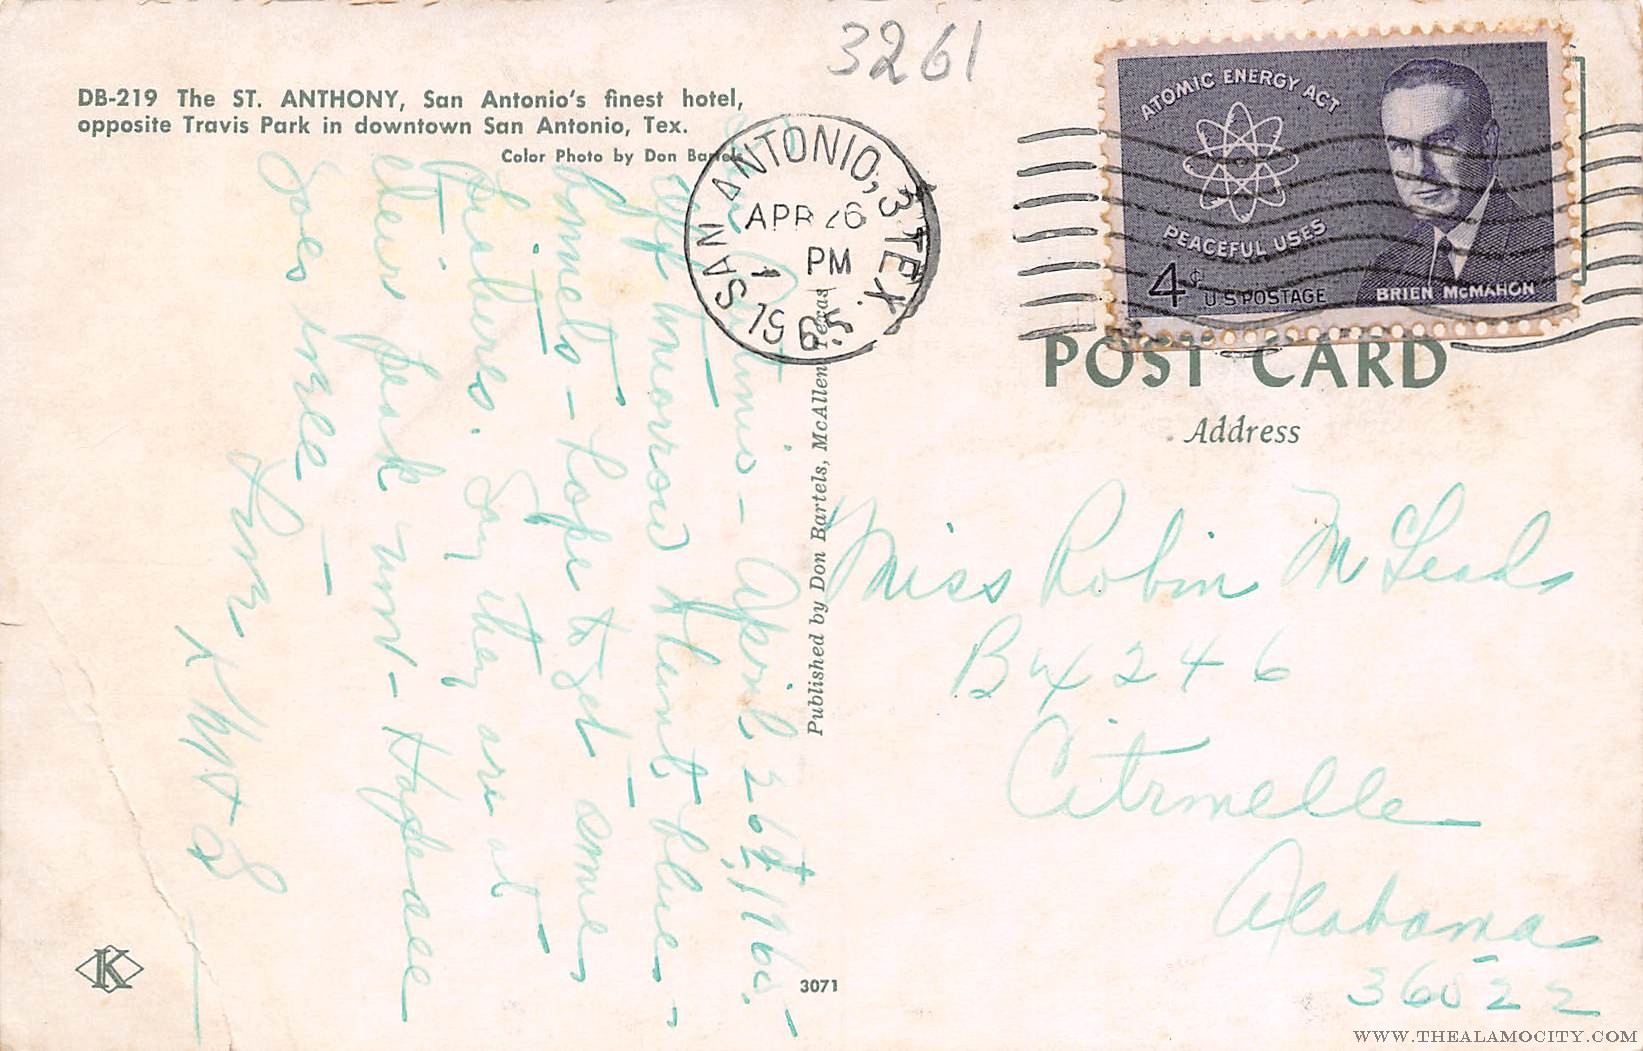 3261
DB-219 The ST. ANTHONY, San Antonio's finest hotel,
opposite Travis Park in downtown San Antonio, Tex.
Color Photo by Don Bartels
SAN ANTONIO, TEX. 3
APR 26
1 PM
1965
ATOMIC ENERGY ACT
PEACEFUL USES
4¢ U.S. POSTAGE
BRIEN McMAHON
POST CARD
Address
Published by Don Bartels, McAllen, Texas
San Antonio - April 26th, 1965 -
Off tomorrow to hunt blue-
bonnets - hope to get some
pictures. Say they are at
their peak now - Hope all
goes well -
Miss Robin McLeod
Box 246
Citronelle
Alabama
36522
K
3071
WWW.THEALAMOCITY.COM